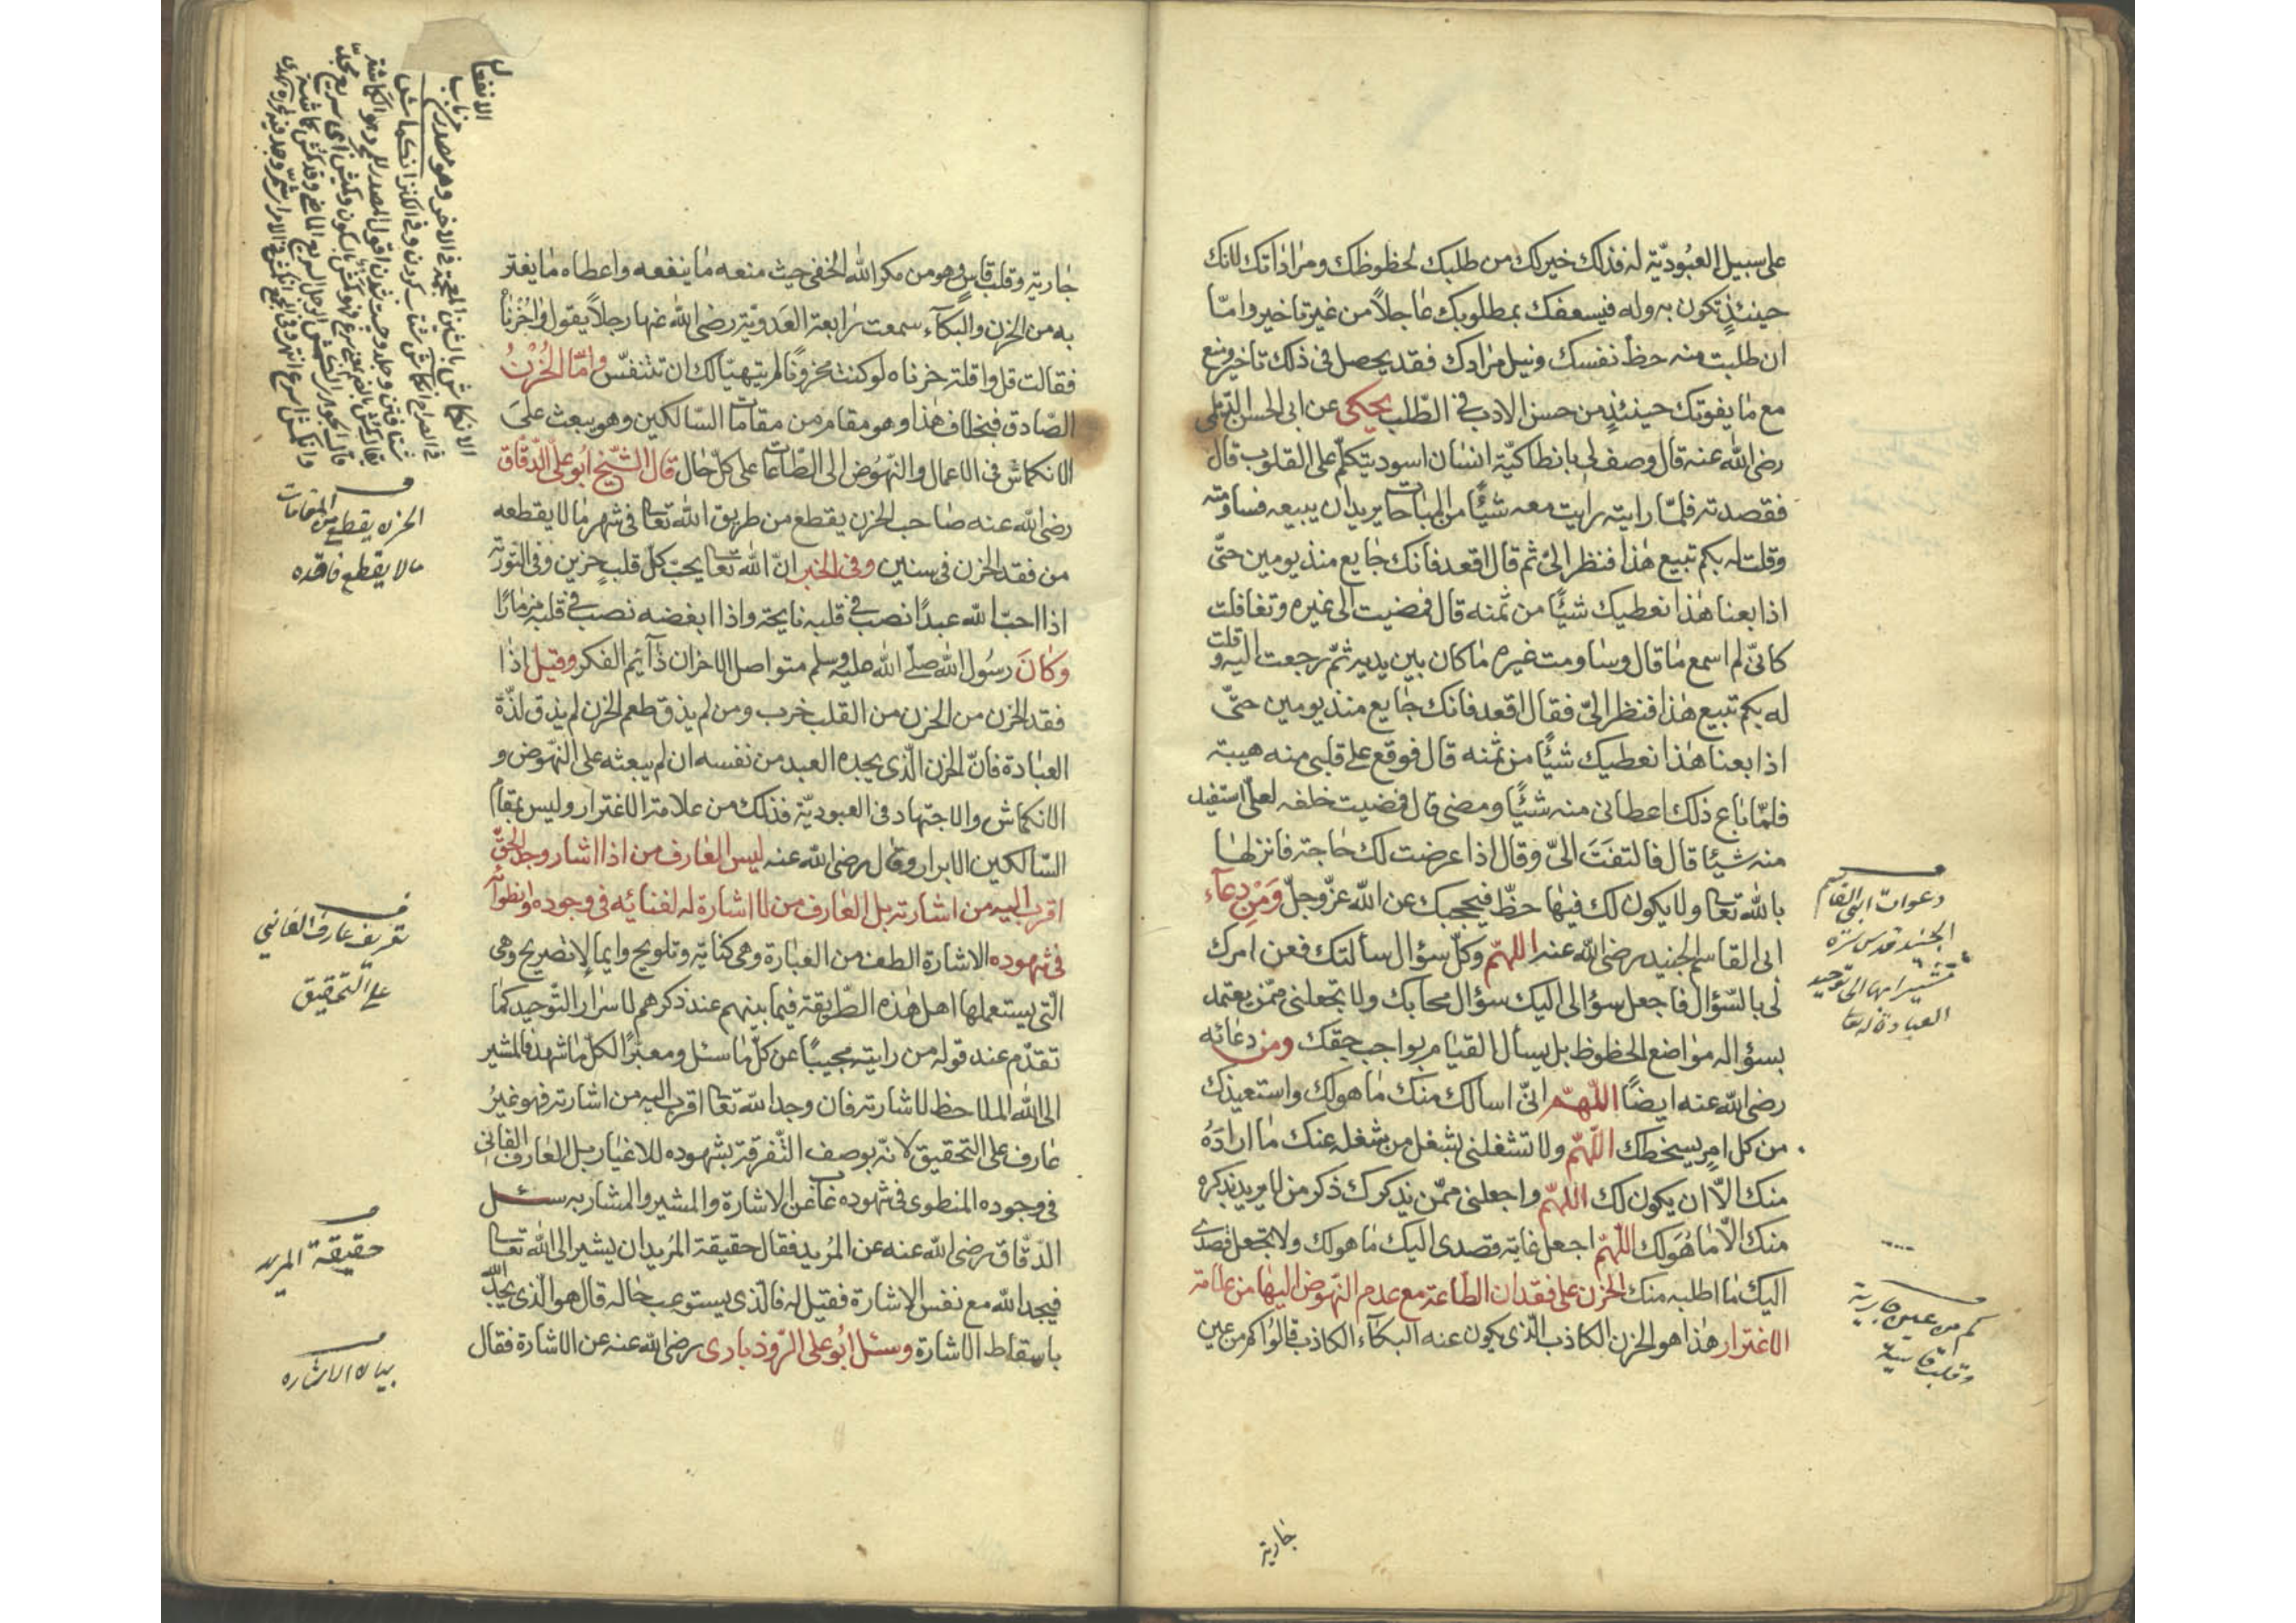 على سبيل العبوديّة له فذلك خير لك من طلبك لحظوظك ومراداتك لانك
حينئذٍ تكون به وله فيسعفك بمطلوبك عاجلاً من غير تاخير وامّا
ان طلبت منه حظّ نفسك ونيل مرادك فقد يحصل فى ذلك تاخير ومنع
مع ما يفوتك حينئذٍ من حسن الادب فى الطّلب يحكى عن ابى الحسن
رضى الله عنه قال وصف لى بانطاكيّة انسان اسود يتكلّم على القلوب قال
فقصدته فلمّا رايته رايت معه شيئًا من المباحات يريد ان يبيعه فساومته
وقلت له بكم تبيع هذا فنظر الىّ ثم قال اقعد فانك جايع منذ يومين حتّى
اذا بعنا هذا نعطيك شيئًا من ثمنه قال فمضيت الى غيره وتغافلت
كانّى لم اسمع ما قال وساومت غيره ما كان بين يديه ثمّ رجعت اليه وقلت
له بكم تبيع هذا فنظر الىّ فقال اقعد فانك جايع منذ يومين حتّى
اذا بعنا هذا نعطيك شيئًا من ثمنه قال فوقع على قلبى منه هيبة
فلمّا باع ذلك اعطانى منه شيئًا ومضى قال فمضيت خلفه لعلّى استفيد
منه شيئا قال فالتفت الىّ وقال اذا عرضت لك حاجة فانزلها
بالله تعالى ولا يكون لك فيها حظّ فيحجبك عن الله عزّ وجلّ ومن دعاء
ابى القاسم الجنيد رضى الله عنه اللهمّ وكلّ سؤال سألتك فعن امرك
لى بالسّؤال فاجعل سؤالى اليك سؤال محابك ولا تجعلنى ممّن يعتمد
بسؤاله مواضع الحظوظ بل يسأل القيام بواجب حقك ومن دعائه
رضى الله عنه ايضًا اللّهمّ انّى اسالك منك ما هو لك واستعيذك
من كل امرٍ يسخطك اللّهمّ ولا تشغلنى بشغل من شغله عنك ما اراده
منك الّا ان يكون لك اللهمّ واجعلنى ممّن يذكرك ذكر من لا يريد بذكره
منك الّا ما هو لك اللّهمّ اجعل غاية قصدى اليك ما هو لك ولا تجعل قصدى
اليك ما اطلبه منك الحزن على فقدان الطّاعة مع عدم النّهوض اليها من علامة
الاغترار هذا هو الحزن الكاذب الّذى يكون عنه البكاء الكاذب قالوا كم من عين
دعوات ابى القاسم
الجنيد قدس سره
العبادة له تعا
كم من عين جارية
وقلب قاسية
جارية
جارية وقلب قاسٍ وهو من مكر الله الخفى حيث منعه ما ينفعه واعطاه ما يغتر
به من الحزن والبكآء سمعت رابعة العدويّة رضى الله عنها رجلاً يقول واحزناه
فقالت قل واقلة حزناه لو كنت محزونًا لم يتهيّأ لك ان تتنفّس وامّا الحزن
الصّادق فبخلاف هذا وهو مقام من مقامات السّالكين وهو يبعث على
الانكماش فى الاعمال والنّهوض الى الطّاعات على كلّ حال قال الشّيخ ابو على الدّقّاق
رضى الله عنه صاحب الحزن يقطع من طريق الله تعالى فى شهر ما لا يقطعه
من فقد الحزن فى سنين وفى الخبر انّ الله تعالى يحبّ كلّ قلب حزين وفى التّورٰية
اذا احبّ الله عبدًا نصب فى قلبه نايحة واذا ابغضه نصب فى قلبه مزمارًا
وكان رسول الله صلى الله عليه وسلم متواصل الاحزان دآئم الفكر وقيل اذا
فقد الحزن من الحزن من القلب خرب ومن لم يذق طعم الحزن لم يذق لذّة
العبادة فانّ الحزن الّذى يجده العبد من نفسه ان لم يبعثه على النّهوض و
الانكماش والاجتهاد فى العبوديّة فذلك من علامة الاغترار وليس بمقام
السّالكين الابرار وقال رضى الله عنه ليس العارف من اذا اشار وجد الحقّ
اقرب اليه من اشارته بل العارف من لا اشارة له لفنائه فى وجوده وانطوائه
فى شهوده الاشارة الطف من العبارة وهى كناية وتلويح وايما لا تصريح وهى
الّتى يستعملها اهل هذه الطّريقة فيما بينهم عند ذكرهم لاسرار التّوحيد كما
تقدّم عند قوله من رايته مجيبًا عن كلّ ما سئل ومعبرًا لكلّ ما شهد فالمشير
الى الله الملاحظ لاشارته فان وجد الله تعالى اقرب اليه من اشارته فهو غير
عارف على التحقيق لانّه بوصف التّفرقة بشهوده للاغيار بل العارف الفانى
فى وجوده المنطوى فى شهوده غاب عن الاشارة والمشير والمشار به سئل
الدّقّاق رضى الله عنه عن المريد فقال حقيقة المريد ان يشير الى الله تعالى
فيجد الله مع نفس الاشارة فقيل له فالّذى يستوعب حاله قال هو الّذى يجد الله
باسقاط الاشارة وسئل ابو على الرّوذبارى رضى الله عنه عن الاشارة فقال
الحزن يقطع من المقامات
ما لا يقطع فاقده
تعريف عارف الفانى
على التحقيق
حقيقة المريد
بيان الاشاره